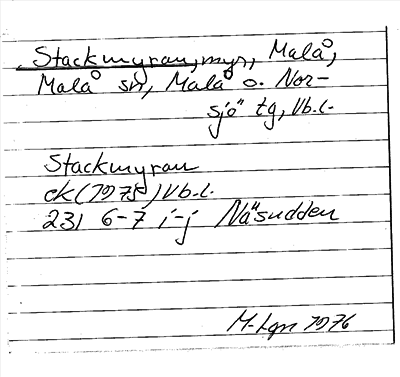 Stackmyran, myr, Malå,
Malå sn, Malå o. Nor-
sjö tg, Vb.l.
Stackmyran
ek (1975) Vb.l.
23I 6-7 i-j Näsudden
M-Lgn 1976